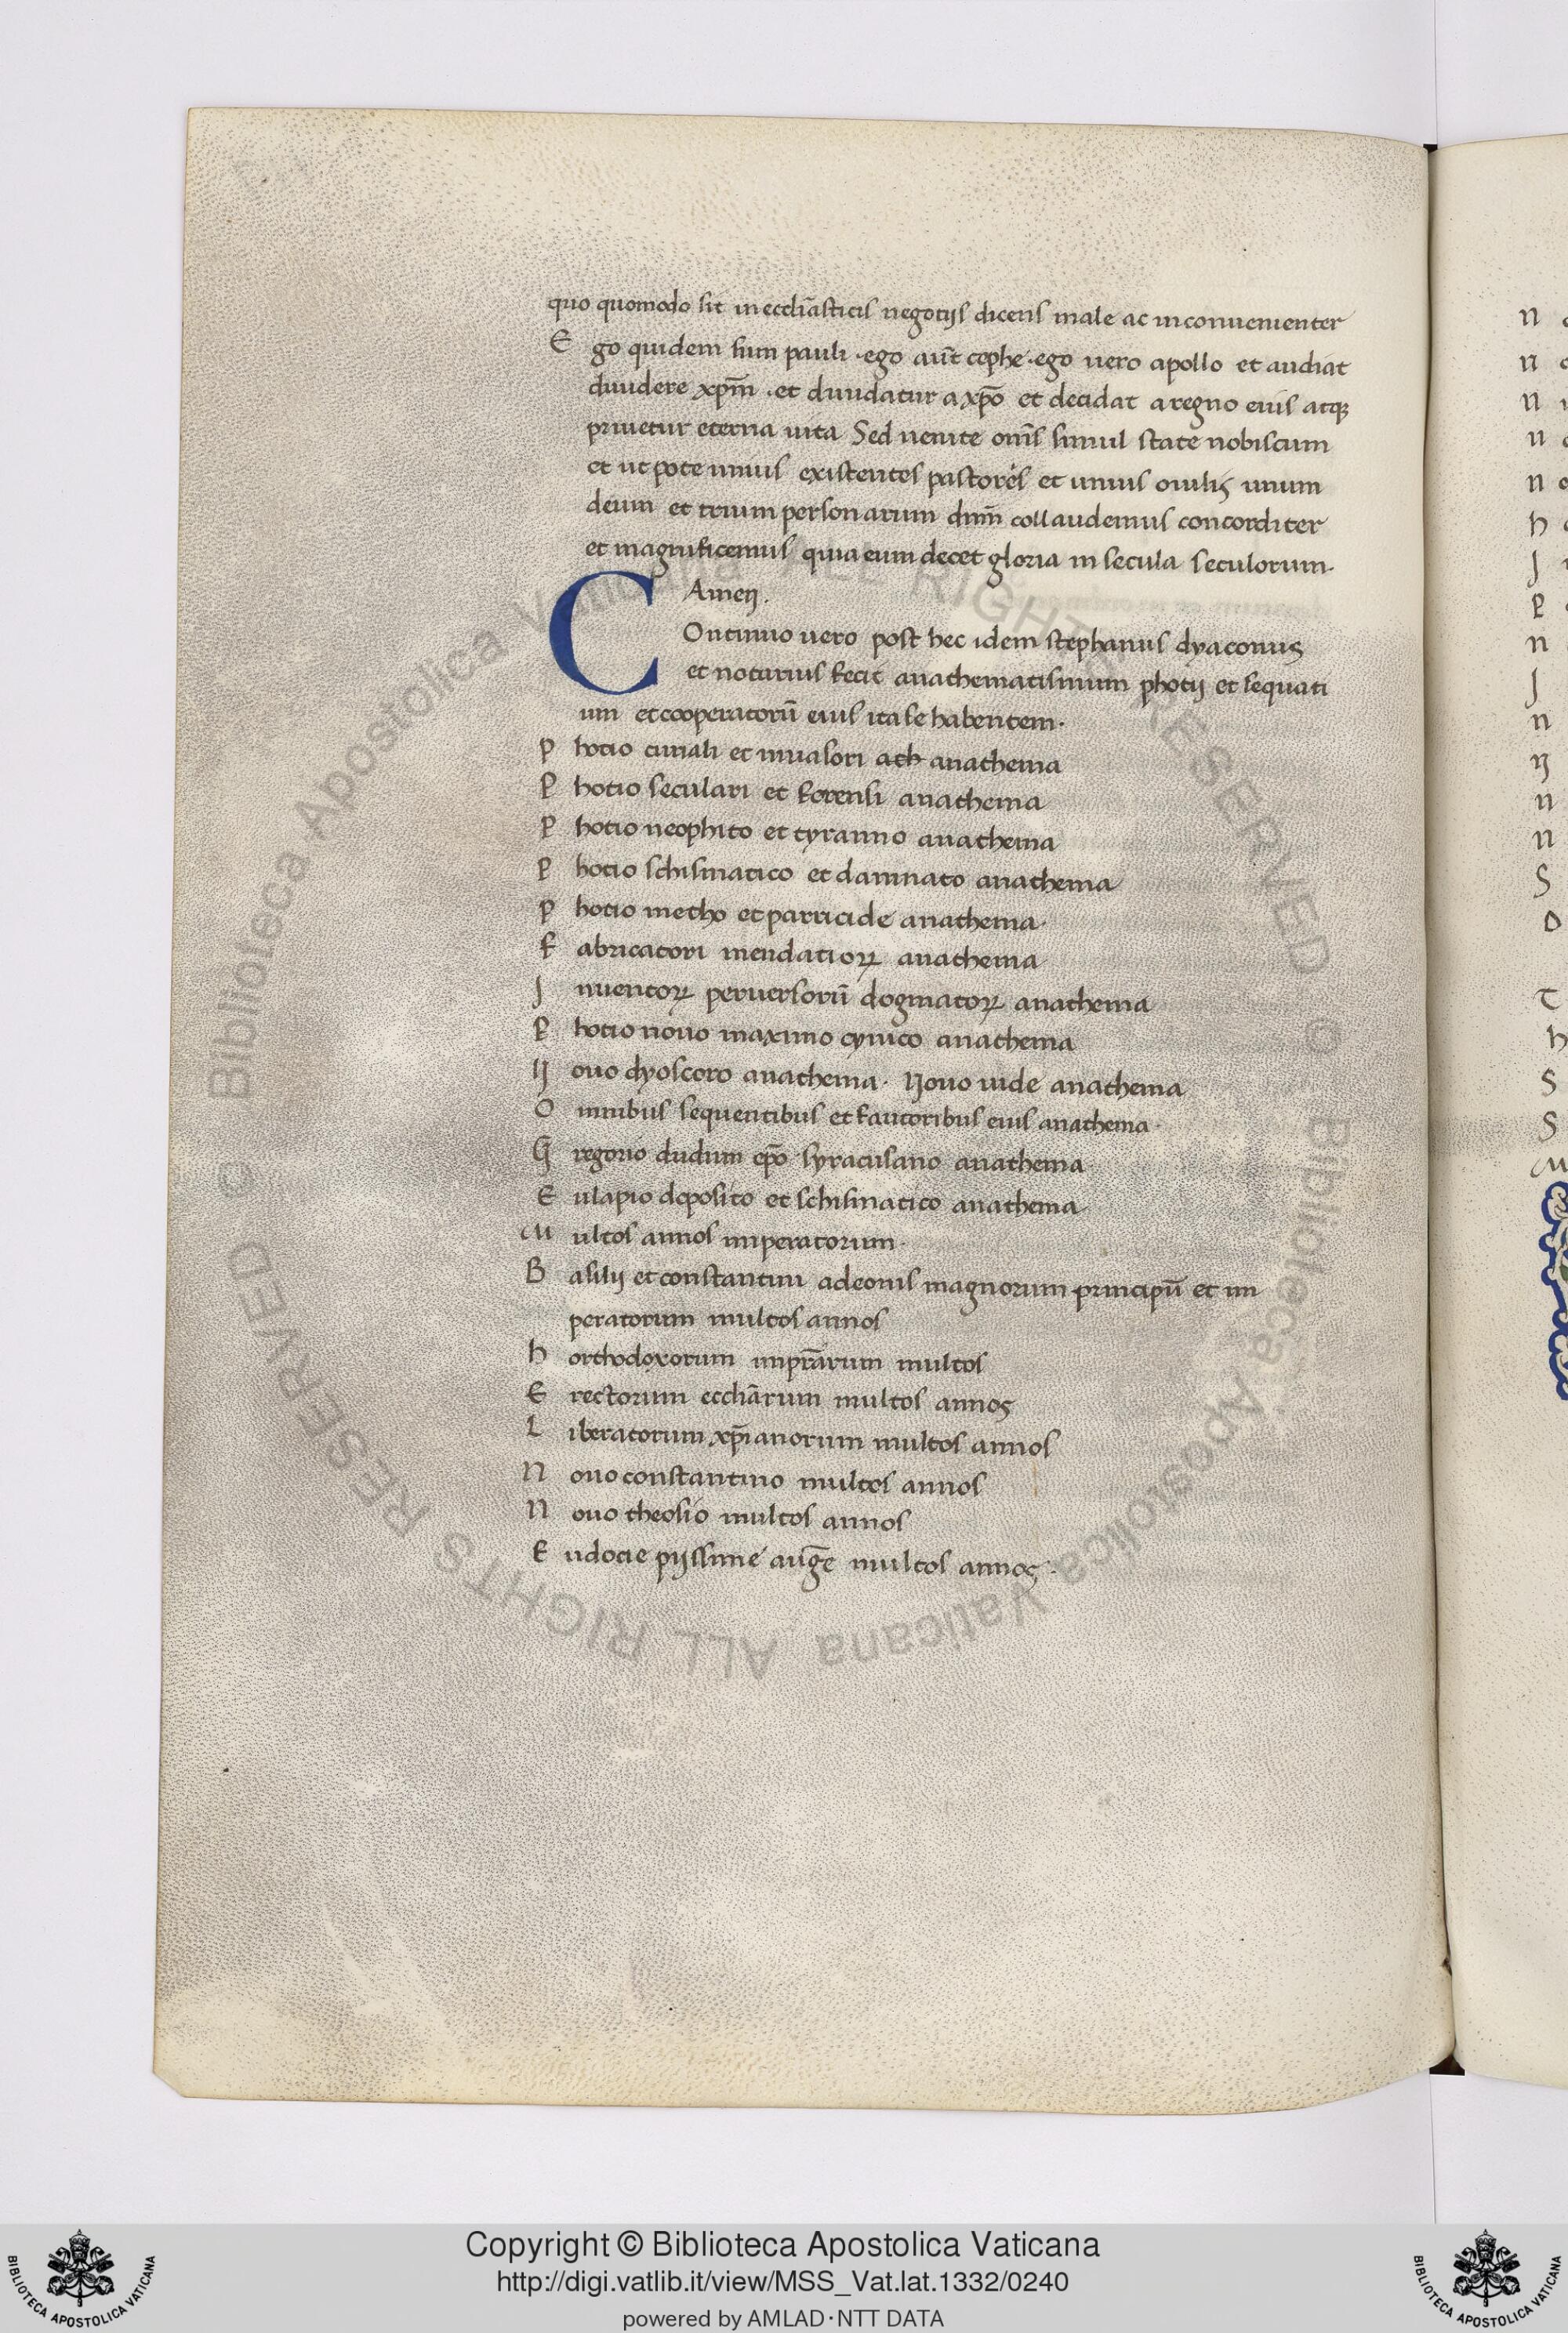 quo quomodo sit in eccli̅asticis negotijs dicens male ac inconuenienter
E go quidem sum pauli . ego aut̅ cephe . ego uero apollo et audiat
diuidere xp̅m . et diuidatur a xp̅o et decidat a regno eius atqꝫ
priuetur eterna uita Sed uenite om̅s simul state nobiscum
et ut pote unius existentes pastores et unius ouilis unum
deum et trium personarum dnm̅ collaudemus concorditer
et magnificemus quia eum decet gloria in secula seculorum.
Amen.
C Ontinuo uero post hec idem stephanus dyaconus
et notarius fecit anathematismum photij et sequati
um et cooperatoru̅ eius ita se habentem.
P hotio curiali et inuasori ath anathema
P hotio seculari et forensi anathema
P hotio neophito et tyranno anathema
P hotio schismatico et damnato anathema
P hotio metho et parricide anathema.
F abricatori mendatioꝝ anathema
J nuentoꝝ peruersoru̅ dogmatoꝝ anathema
P hotio nouo maximo cynico anathema
N ouo dyoscoro anathema. Nouo iude anathema
O mnibus sequentibus et fautoribus eius anathema.
G regorio dudum ep̅o syracusano anathema
E ulapio deposito et schismatico anathema
M ultos annos imperatorum.
B asilij et constantini adeonis magnorum principu̅ et im
peratorum multos annos
h orthodoxorum impr̅arum multos
E rectorum eccha̅rum multos annos
L iberatorum xp̅ianorum multos annos
N ouo constantino multos annos
N ouo theosio multos annos
E udocie pijssime aug̅e multos annos.
Copyright © Biblioteca Apostolica Vaticana
http://digi.vatlib.it/view/MSS_Vat.lat.1332/0240
powered by AMLAD·NTT DATA
BIBLIOTECA APOSTOLICA VATICANA
BIBLIOTECA APOSTOLICA VATICANA
© Biblioteca Apostolica Vaticana ALL RIGHTS RESERVED
© Biblioteca Apostolica Vaticana ALL RIGHTS RESERVED